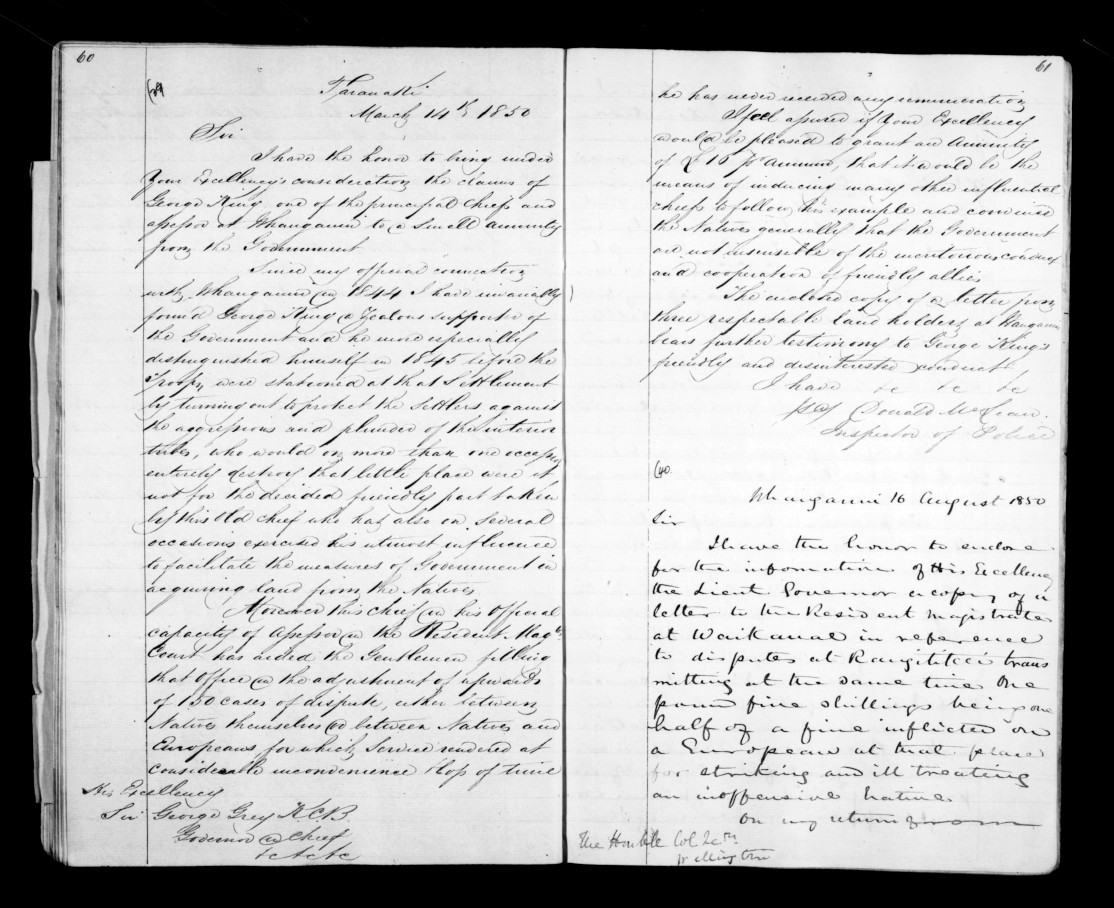 60
(39
Taranaki
March 14th 1850
Sir
I have the honor to bring under
Your Excellency's consideration the claims of
George King one of the principal Chiefs and
assessor at Whanganui to a Small annuity
from the Government
Since my official connection
with Whanganui in 1844 I have invariably
found George King a Zealous supporter of
the Government and he more especially
distinguished himself in 1845 before the
Troops were stationed at that Settlement
by turning out to protect the Settlers against
the aggressions and plunder of the interior
tribes, who would on more than one occasion
entirely destroy that little place were it
not for the decided friendly part taken
by this Old chief who has also on Several
occasions exercised his utmost influence
to facilitate the measures of Government in
acquiring land from the Natives
Moreover this chief in his Official
capacity of Assessor in the Resident Magts
Court has aided the Gentlemen filling
that Office in the adjustment of upwards
of 150 cases of dispute, either between
Natives themselves or between Natives and
Europeans, for which Service rendered at
considerable inconvenience & loss of time
His Excellency
Sir George Grey K.C.B.
Governor in Chief
&c &c &c
61
he has never received any remuneration
I feel assured if Your Excellency
would be pleased to grant an Annuity
of £ 16 pr Annum, that it would be the
means of inducing many other influential
chiefs to follow his example and convince
the Natives generally that the Government
are not insensible of the meritorious conduct
and cooperation of friendly allies
The enclosed copy of a letter from
three respectable land holders at Wanganui
bears further testimony to George King's
friendly and disinterested conduct
I have &c &c &c
Donald McLean.
Inspector of Police
(40
Whanganui 16 August 1850
Sir
I have the honor to enclose
for the information of His Excellency
the Lieut Governor a copy of a
letter to the Resident Magistrate
at Waikanae in reference
to disputes at Rangitikei trans
mitting at the same time One
pound five shillings being one
half of a fine inflicted on
a European at that place
for striking and ill treating
an inoffensive Native
On my return from
The Honble Col Secty
Wellington